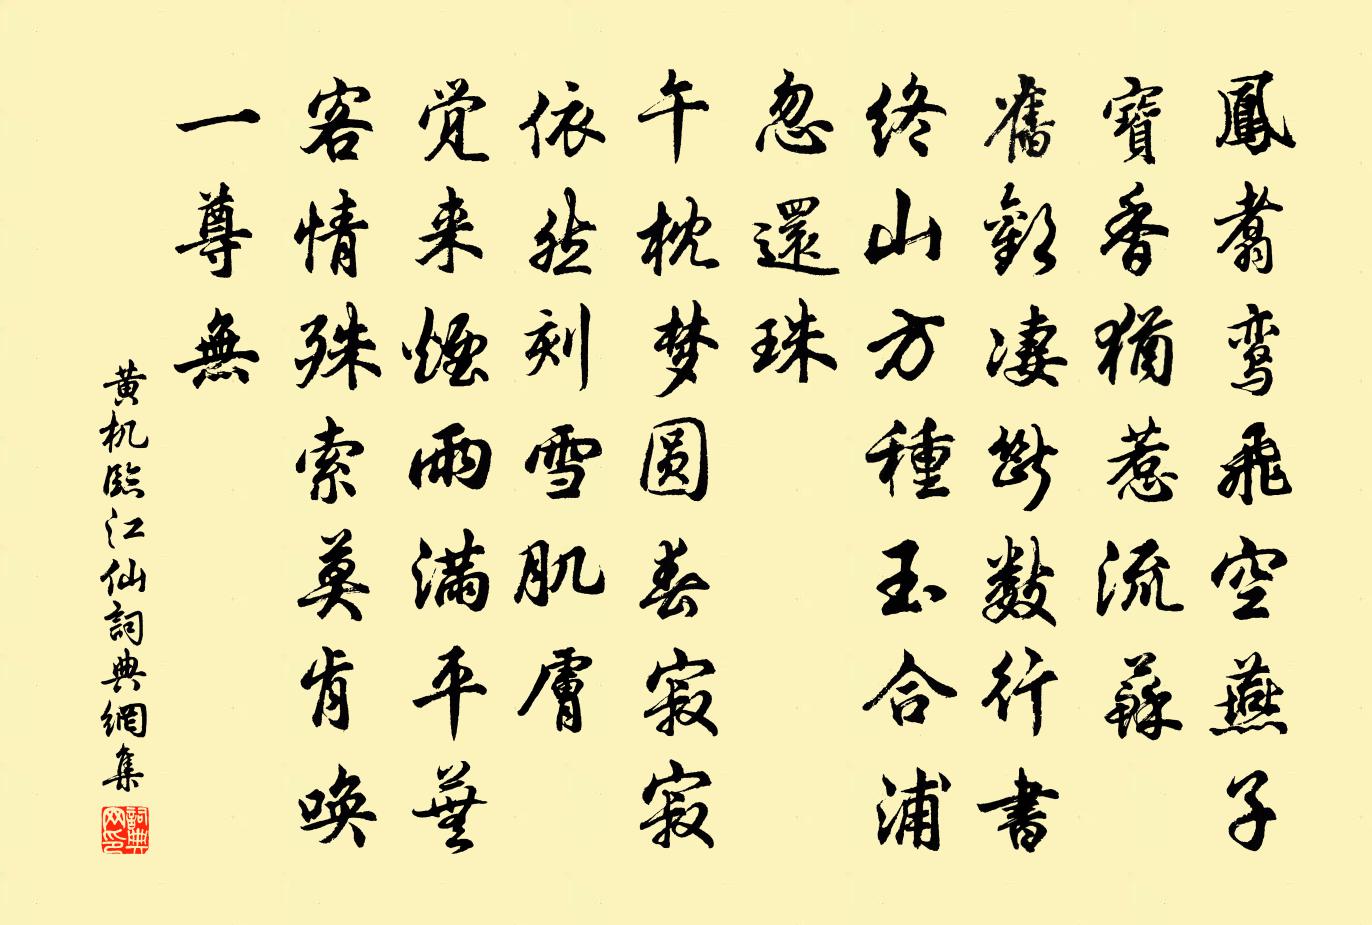 鳳翥鸾飛空燕子
寶香猶惹流蘇
舊歡凄斷数行書
终山方種玉合浦
忽還珠
午枕梦圆春寂寂
依然刻雪肌膚
觉来煙雨满平蕪
客情殊索莫肯唤
一尊無
黄机臨江仙詞典網集
詞典网印